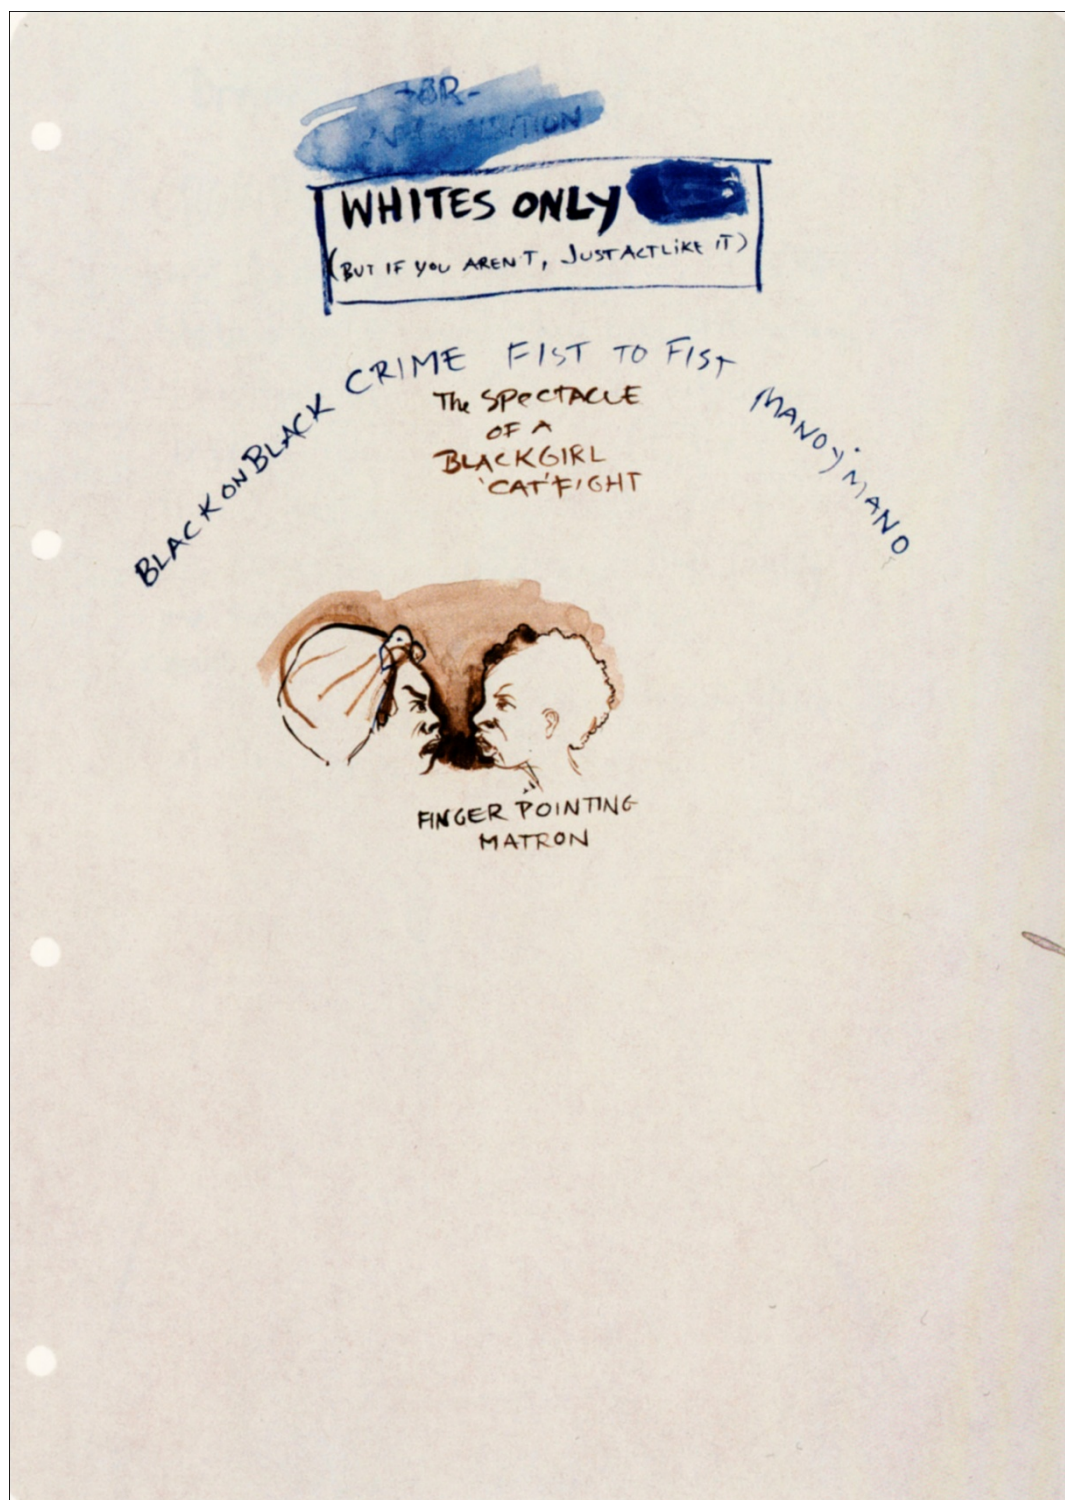 -BR-
WHITES ONLY
(BUT IF YOU AREN'T, JUST ACT LIKE IT)
BLACK ON BLACK CRIME FIST TO FIST MANO Y MANO
The SPECTACLE
OF A
BLACKGIRL
'CAT'FIGHT
FINGER POINTING
MATRON